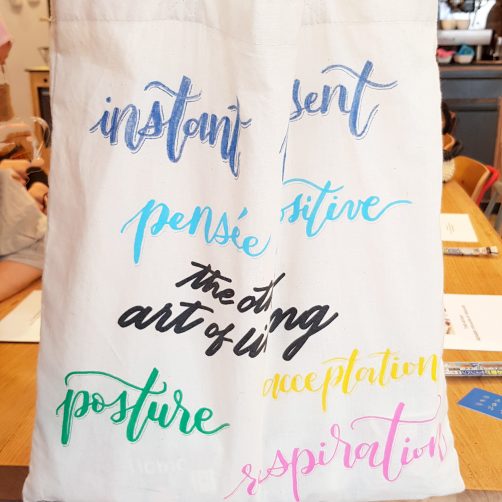 instant sent
pensée sitive
the oth
art of li ng
posture
acceptation
spiration